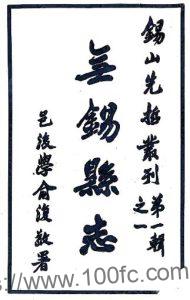 錫山先哲叢刊第一輯之一
無錫縣志
邑後學俞復敬署
www.100fc.com